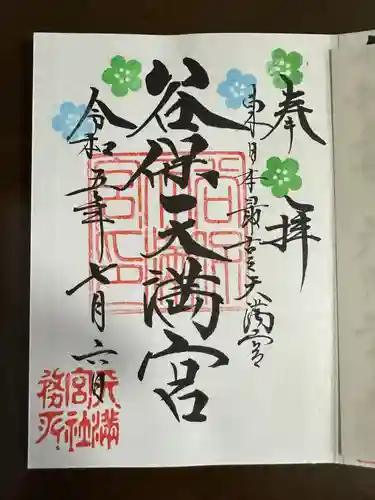 奉拝
東日本最古之天満宮
谷保天満宮
令和五年七月六日
天満
宮社
務所